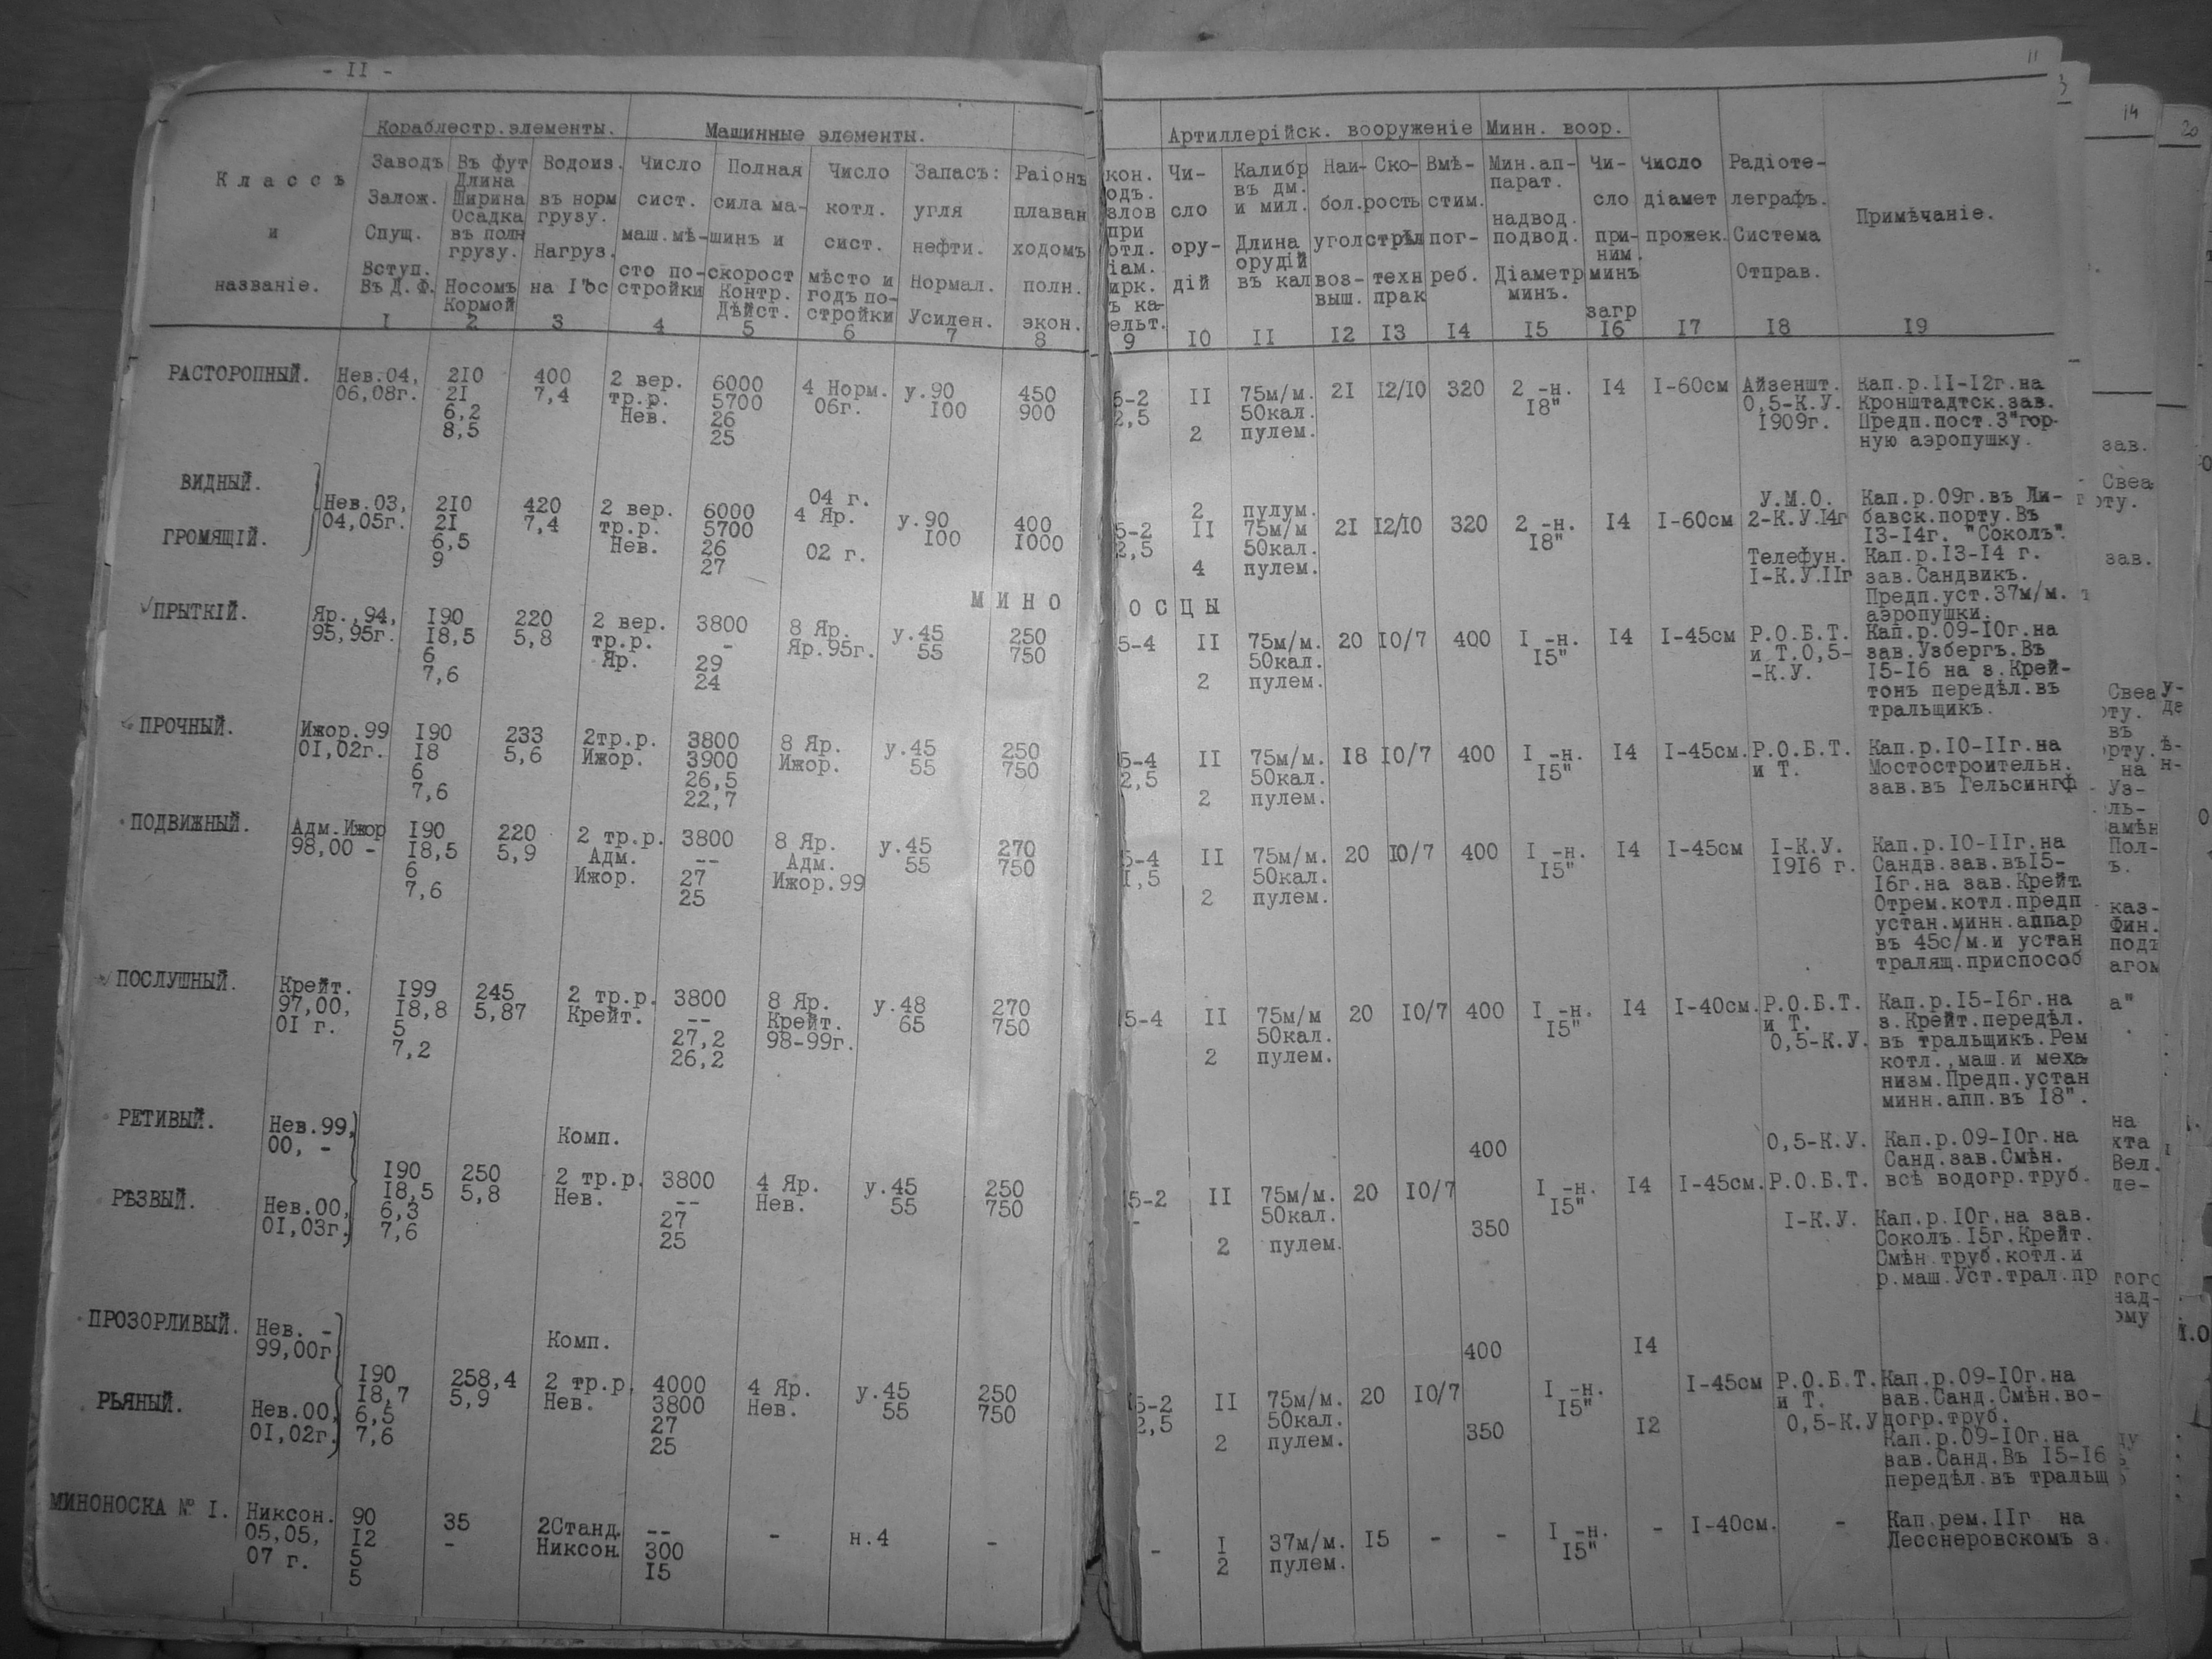 - II -
11
3
14
20
Кораблестр.элементы. Машинные элементы. Артиллерійск. вооруженіе Минн. воор.
Классъ
и
названіе.
Заводъ
Залож.
Спущ.
Вступ.
Въ Д.Ф.
1
Въ фут
Длина
Ширина
Осадка
въ полн
грузу.
Носомъ
Кормой
2
Водоиз.
въ норм
грузу.
Нагруз.
на I"ос
3
Число
сист.
маш.мѣ-
сто по-
стройки
4
Полная
сила ма-
шинъ и
скорост
Контр.
Дѣйст.
5
Число
котл.
сист.
мѣсто и
годъ по-
стройки
6
Запасъ:
угля
нефти.
Нормал.
Усилен.
7
Раіонъ
плаван
ходомъ
полн.
экон.
8
кон.
одъ.
злов
при
отл.
іам.
ирк.
ъ ка-
ельт.
9
Чи-
сло
ору-
дій
IO
Калибр
въ дм.
и мил.
Длина
орудій
въ кал
II
Наи-
бол.
угол
воз-
выш.
I2
Ско-
рость
стрѣл
техн
прак
I3
Вмѣ-
стим.
пог-
реб.
I4
Мин.ап-
парат.
надвод.
подвод.
Діаметр
минъ.
I5
Чи-
сло
при-
ним.
минъ
загр
I6
Число
діамет
прожек.
I7
Радіоте-
леграфъ.
Система
Отправ.
I8
Примѣчаніе.
I9
РАСТОРОПНЫЙ.
Нев.04,
06,08г.
2IO
2I
6,2
8,5
400
7,4
2 вер.
тр.р.
Нев.
6000
5700
26
25
4 Норм.
06г.
у.90
IOO
450
900
5-2
2,5
II
2
75м/м.
50кал.
пулем.
2I
I2/IO
320
2 -н.
I8"
I4
I-60см
Айзеншт.
0,5-К.У.
I909г.
Кап.р.II-I2г.на
Кронштадтск.зав.
Предп.пост.3"гор-
ную аэропушку.
ВИДНЫЙ.
ГРОМЯЩІЙ.
Нев.03,
04,05г.
2IO
2I
6,5
9
420
7,4
2 вер.
тр.р.
Нев.
6000
5700
26
27
04 г.
4 Яр.
02 г.
у.90
IOO
400
IOOO
5-2
2,5
2
II
4
пулум.
75м/м
50кал.
пулем.
2I
I2/IO
320
2 -н.
I8"
I4
I-60см
У.М.О.
2-К.У.I4г
Телефун.
I-К.У.IIг
Кап.р.09г.въ Ли-
бавск.порту.Въ
I3-I4г. "Соколъ".
Кап.р.I3-I4 г.
зав.Сандвикъ.
Предп.уст.37м/м.
аэропушки.
МИНО ОСЦЫ
ПРЫТКІЙ.
Яр.,94,
95,95г.
I90
I8,5
6
7,6
220
5,8
2 вер.
тр.р.
Яр.
3800
-
29
24
8 Яр.
Яр.95г.
у.45
55
250
750
5-4
II
2
75м/м.
50кал.
пулем.
20
IO/7
400
I -н.
I5"
I4
I-45см
Р.О.Б.Т.
и Т.0,5-
-К.У.
Кап.р.09-IOг.на
зав.Узбергъ.Въ
I5-I6 на з.Крей-
тонъ передѣл.въ
тральщикъ.
ПРОЧНЫЙ.
Ижор.99
OI,02г.
I90
I8
6
7,6
233
5,6
2тр.р.
Ижор.
3800
3900
26,5
22,7
8 Яр.
Ижор.
у.45
55
250
750
5-4
2,5
II
2
75м/м.
50кал.
пулем.
I8
IO/7
400
I -н.
I5"
I4
I-45см.
Р.О.Б.Т.
и Т.
Кап.р.IO-IIг.на
Мостостроительн.
зав.въ Гельсингф
ПОДВИЖНЫЙ.
Адм.Ижор
98,00 -
I90
I8,5
6
7,6
220
5,9
2 тр.р.
Адм.
Ижор.
3800
--
27
25
8 Яр.
Адм.
Ижор.99
у.45
55
270
750
5-4
I,5
II
2
75м/м.
50кал.
пулем.
20
IO/7
400
I -н.
I5"
I4
I-45см
I-К.У.
I9I6 г.
Кап.р.IO-IIг.на
Сандв.зав.въI5-
I6г.на зав.Крейт.
Отрем.котл.предп
устан.минн.аппар
въ 45с/м.и устан
тралящ.приспособ
ПОСЛУШНЫЙ.
Крейт.
97,00,
OI г.
I99
I8,8
5
7,2
245
5,87
2 тр.р.
Крейт.
3800
--
27,2
26,2
8 Яр.
Крейт.
98-99г.
у.48
65
270
750
5-4
II
2
75м/м
50кал.
пулем.
20
IO/7
400
I -н.
I5"
I4
I-40см.
Р.О.Б.Т.
и Т.
0,5-К.У.
Кап.р.I5-I6г.на
з.Крейт.передѣл.
въ тральщикъ.Рем
котл.,маш.и меха
низм.Предп.устан
минн.апп.въ I8".
РЕТИВЫЙ.
Нев.99,
00, -
РѢЗВЫЙ.
Нев.00,
OI,03г.
I90
I8,5
6,3
7,6
250
5,8
Комп.
2 тр.р.
Нев.
3800
--
27
25
4 Яр.
Нев.
у.45
55
250
750
5-2
-
II
2
75м/м.
50кал.
пулем.
20
IO/7
400
350
I -н.
I5"
I4
I-45см.
0,5-К.У.
Р.О.Б.Т.
I-К.У.
Кап.р.09-IOг.на
Санд.зав.Смѣн.
всѣ водогр.труб.
Кап.р.IOг.на зав.
Соколъ.I5г.Крейт.
Смѣн.труб.котл.и
р.маш.Уст.трал.пр
ПРОЗОРЛИВЫЙ.
Нев. -
99,00г
РЬЯНЫЙ.
Нев.00,
OI,02г.
I90
I8,7
6,5
7,6
258,4
5,9
Комп.
2 тр.р.
Нев.
4000
3800
27
25
4 Яр.
Нев.
у.45
55
250
750
5-2
2,5
II
2
75м/м.
50кал.
пулем.
20
IO/7
400
350
I -н.
I5"
I4
I2
I-45см
Р.О.Б.Т.
и Т.
0,5-К.У
Кап.р.09-IOг.на
зав.Санд.Смѣн.во-
догр.труб.
Кап.р.09-IOг.на
зав.Санд.Въ I5-I6
передѣл.въ тральщ
МИНОНОСКА № I.
Никсон.
05,05,
07 г.
90
I2
5
5
35
-
2Станд.
Никсон.
--
300
I5
-
н.4
-
-
I
2
37м/м.
пулем.
I5
-
-
I -н.
I5"
-
I-40см.
-
Кап.рем.IIг на
Лесснеровскомъ з.